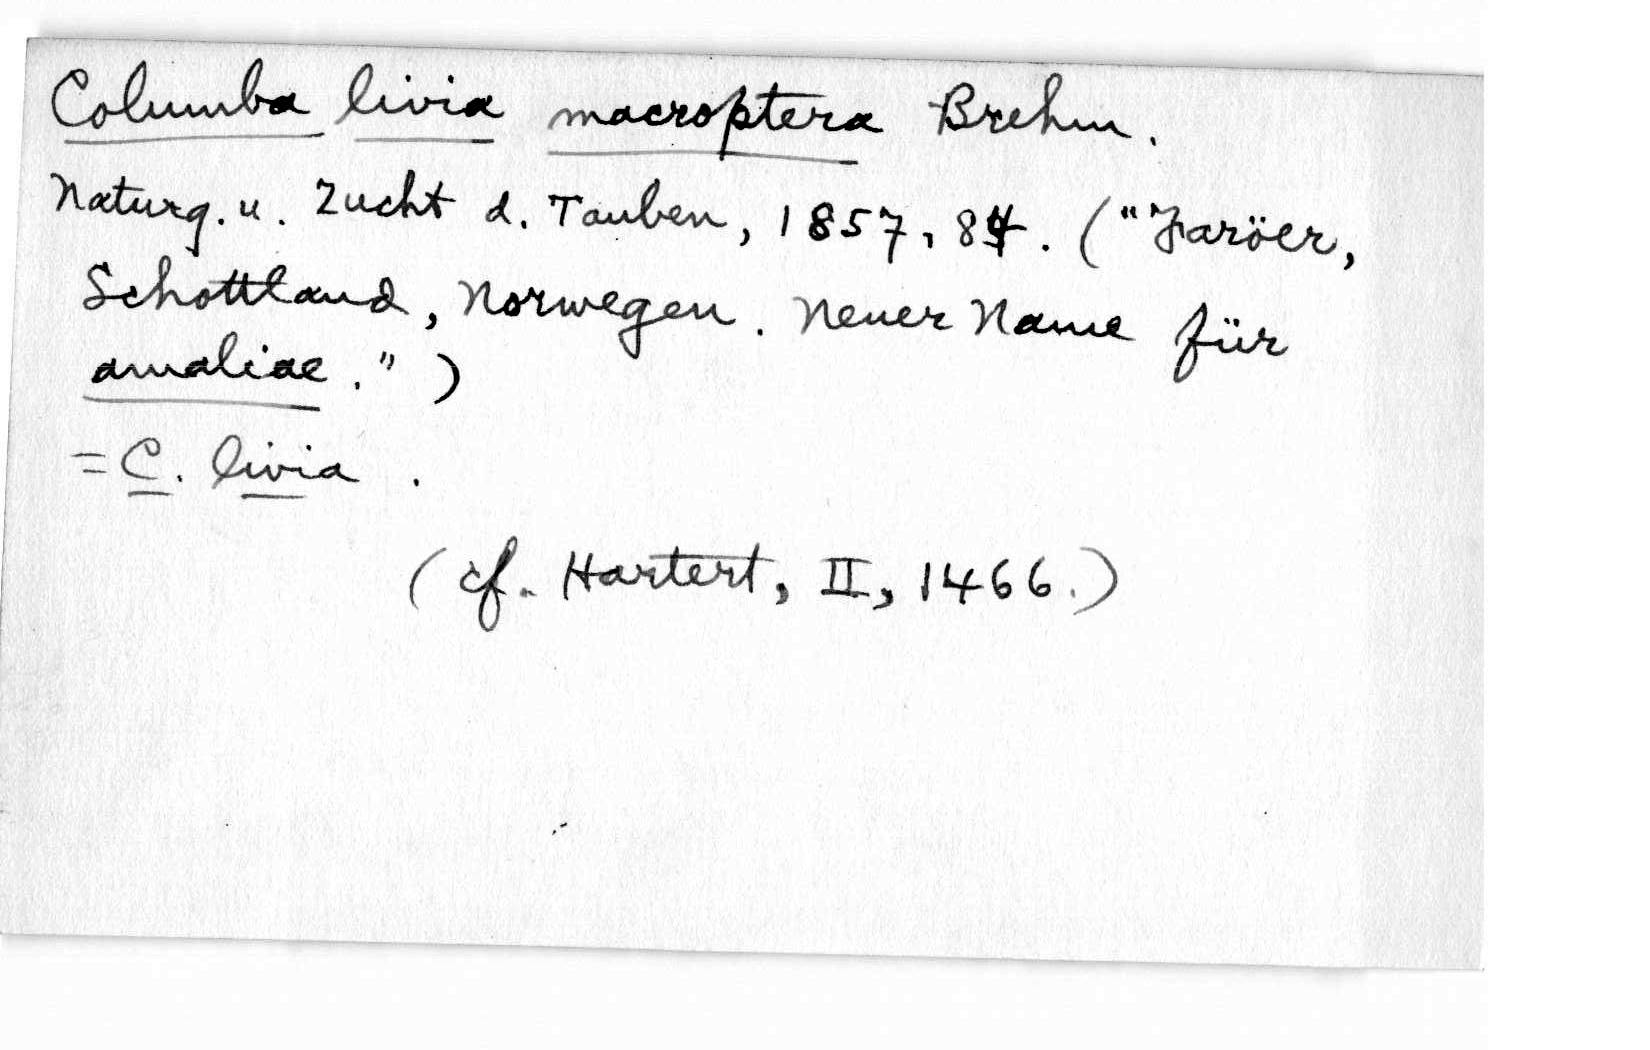 Columba livia macroptera Brehm.
Naturg. u. Zucht d. Tauben, 1857, 84. ("Faröer,
Schottland, Norwegen. Neuer Name für
amaliae.")
= C. livia.
(cf. Hartert, II, 1466.)